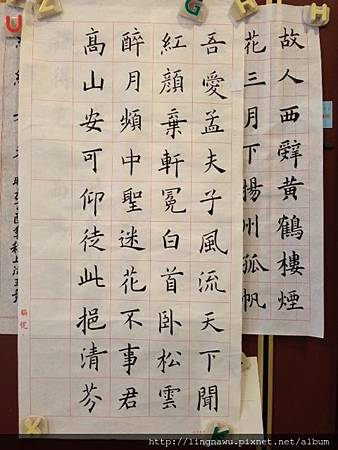 故人西辭黃鶴樓煙
花三月下揚州孤帆
吾愛孟夫子風流天下聞
紅顏棄軒冕白首臥松雲
醉月頻中聖迷花不事君
髙山安可仰徒此挹清芬
http://lingnawu.pixnet.net/album